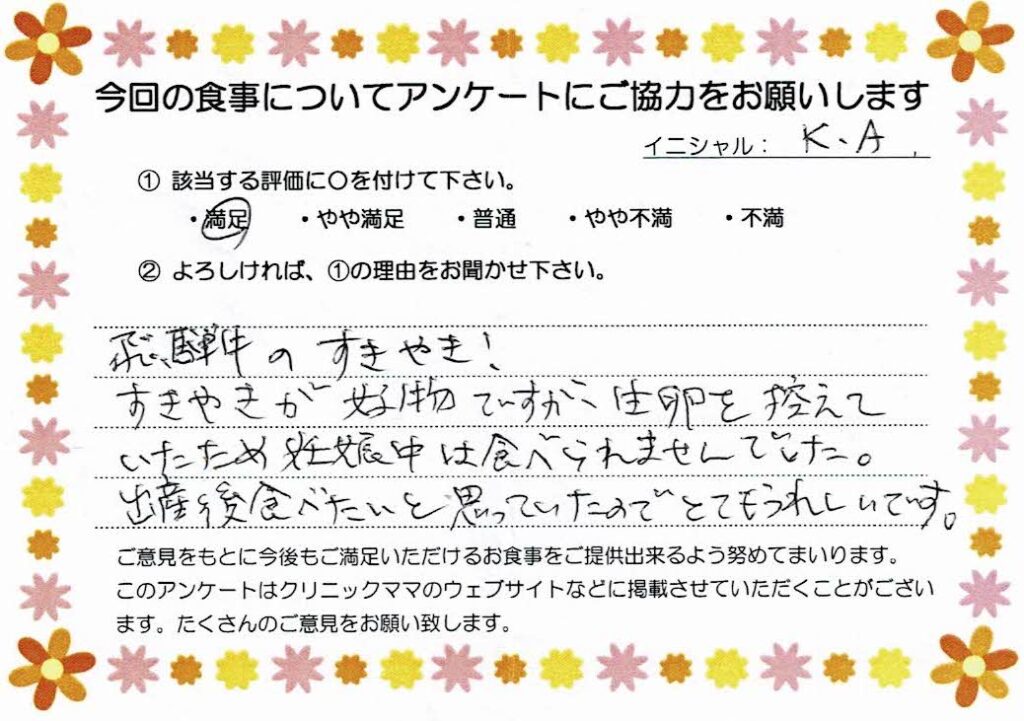 今回の食事についてアンケートにご協力をお願いします
イニシャル： K.A.
① 該当する評価に○を付けて下さい。
・満足 ・やや満足 ・普通 ・やや不満 ・不満
② よろしければ、①の理由をお聞かせ下さい。
飛騨牛のすきやき！
すきやきが好物ですが、生卵を控えて
いたため妊娠中は食べられませんでした。
出産後食べたいと思っていたのでとてもうれしいです。
ご意見をもとに今後もご満足いただけるお食事をご提供出来るよう努めてまいります。
このアンケートはクリニックママのウェブサイトなどに掲載させていただくことがござい
ます。たくさんのご意見をお願い致します。